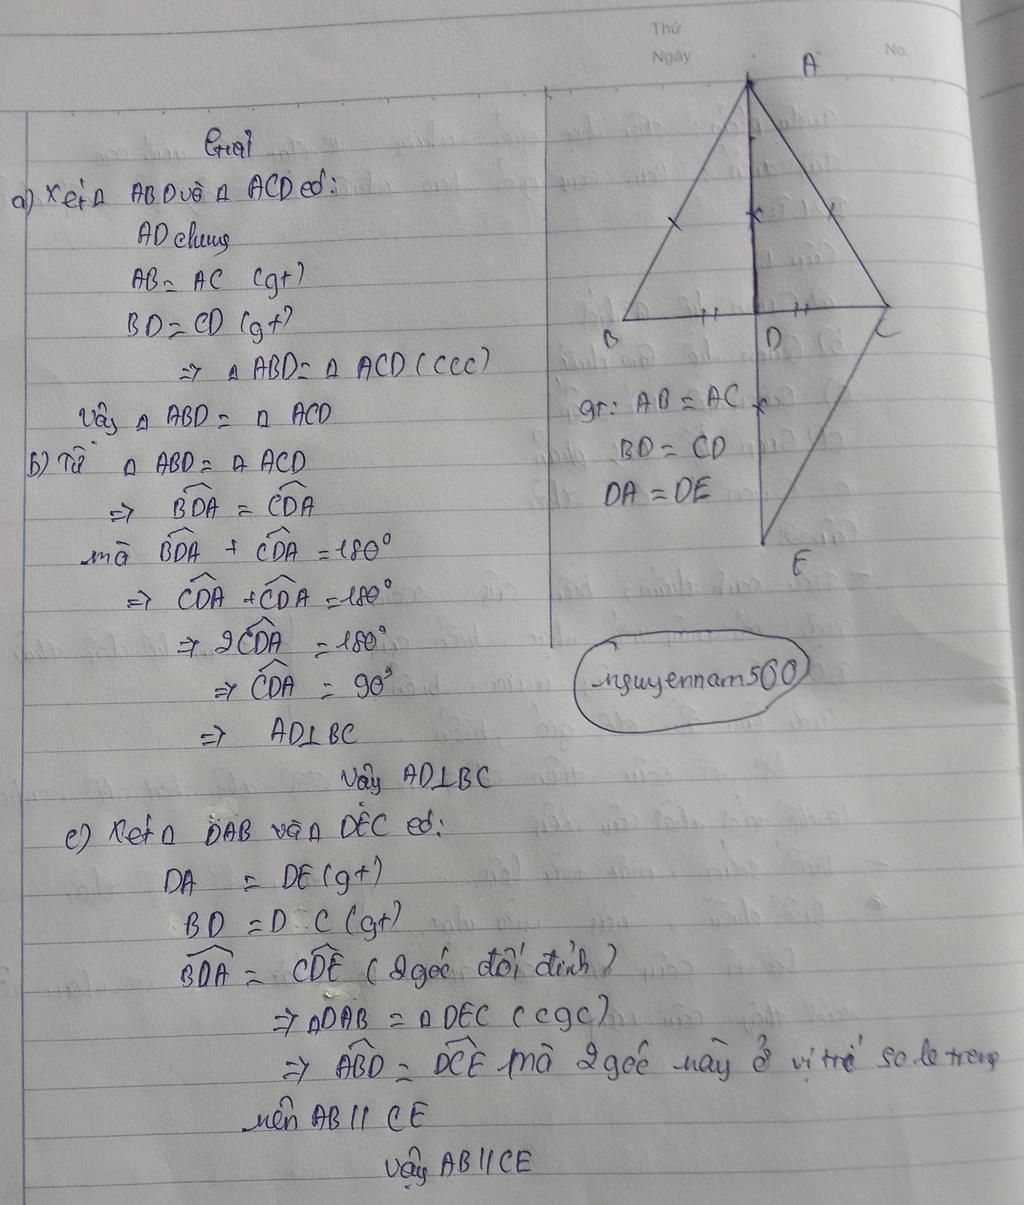 Thứ
Ngày
No.
Giải
a) Xét Δ ABD và Δ ACD có:
AD chung
AB = AC (gt)
BD = CD (gt)
=> Δ ABD = Δ ACD (ccc)
Vậy Δ ABD = Δ ACD
b) Từ Δ ABD = Δ ACD
=> \widehat{BDA} = \widehat{CDA}
mà \widehat{BDA} + \widehat{CDA} = 180°
=> \widehat{CDA} + \widehat{CDA} = 180°
=> 2\widehat{CDA} = 180°
=> \widehat{CDA} = 90°
=> AD⊥BC
Vậy AD⊥BC
c) Xét Δ DAB và Δ DEC có:
DA = DE (gt)
BD = DC (gt)
\widehat{BDA} = \widehat{CDE} (2 góc đối đỉnh)
=> ΔDAB = Δ DEC (cgc)
=> \widehat{ABD} = \widehat{DCE} mà 2 góc này ở vị trí so le trong
nên AB // CE
Vậy AB // CE
A
B
D
C
E
gt: AB = AC
BD = CD
DA = DE
nguyennam500